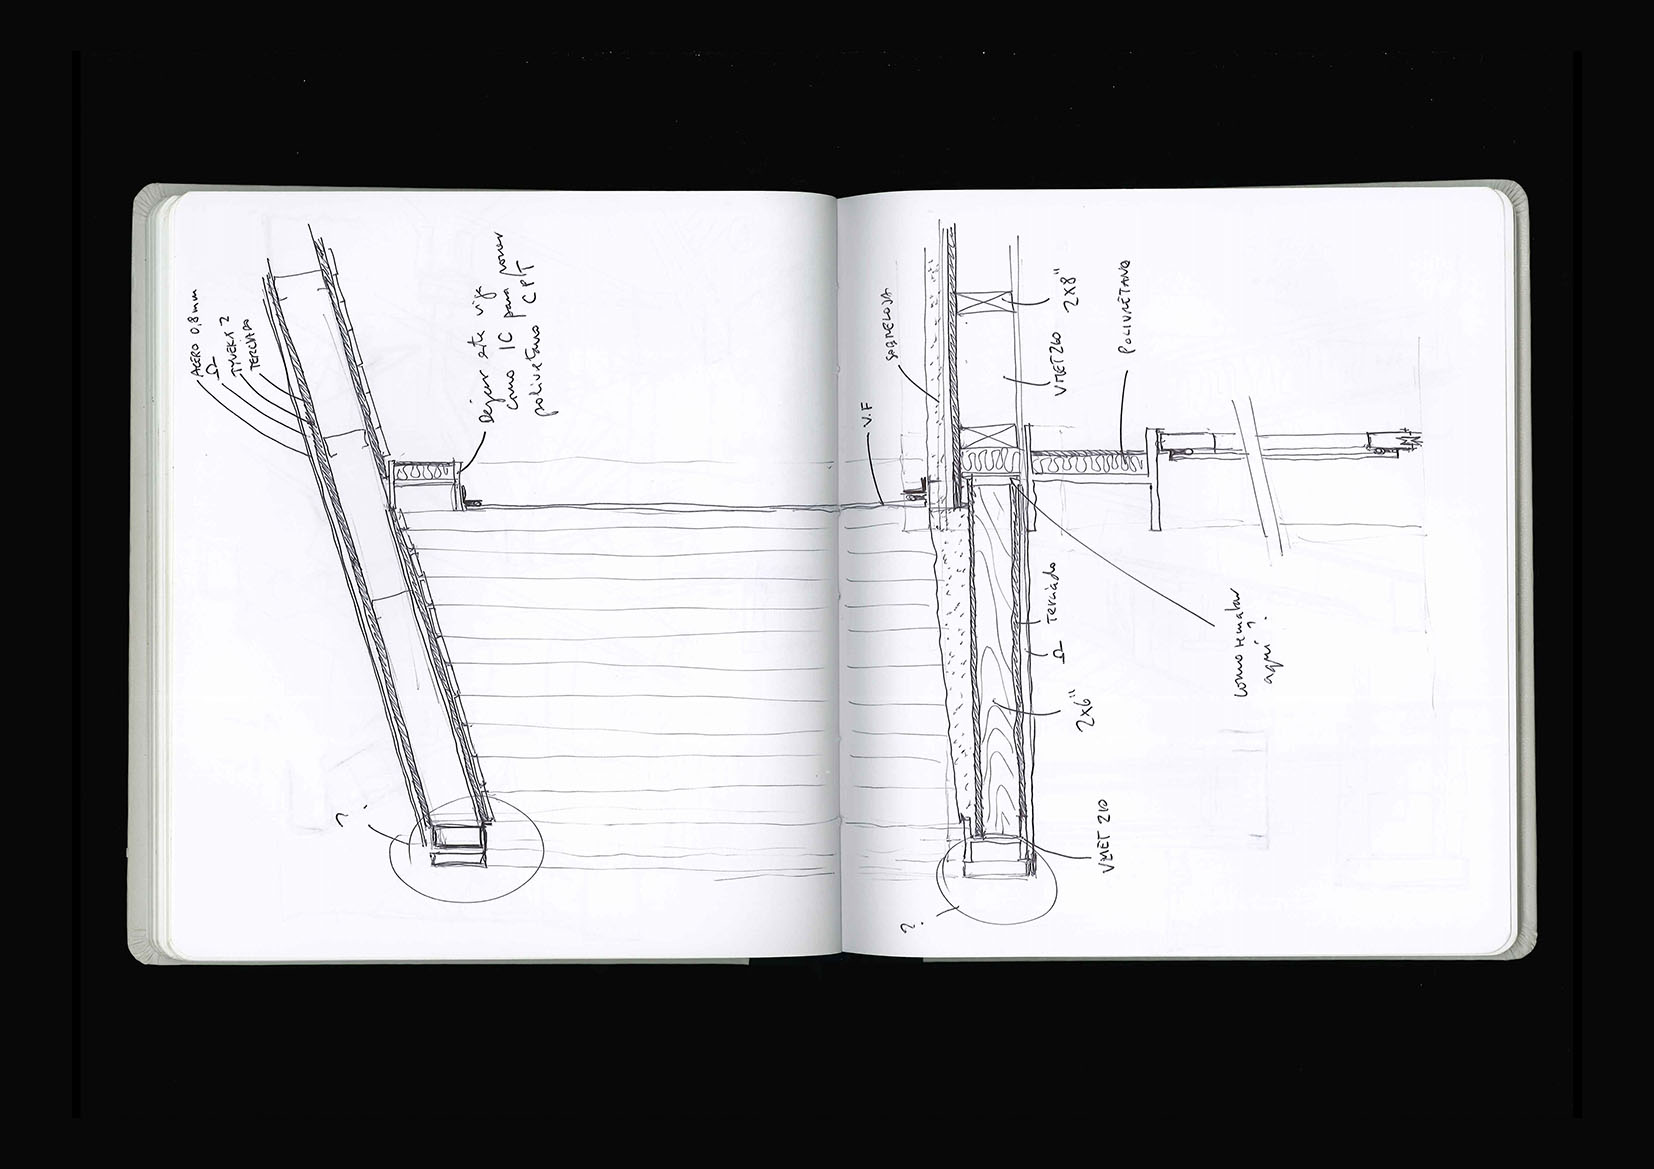 ACERO 0,8 mm
Ω
TYVEK x 2
TERCIADO
Dejar esta viga
como IC para poner
poliuretano CP/T
?
V.F
SOBRELOSA
2x8"
VMET 260
POLIURETANO
Terciado
Ω
2x6"
como rematar
aquí?
VMET 210
?